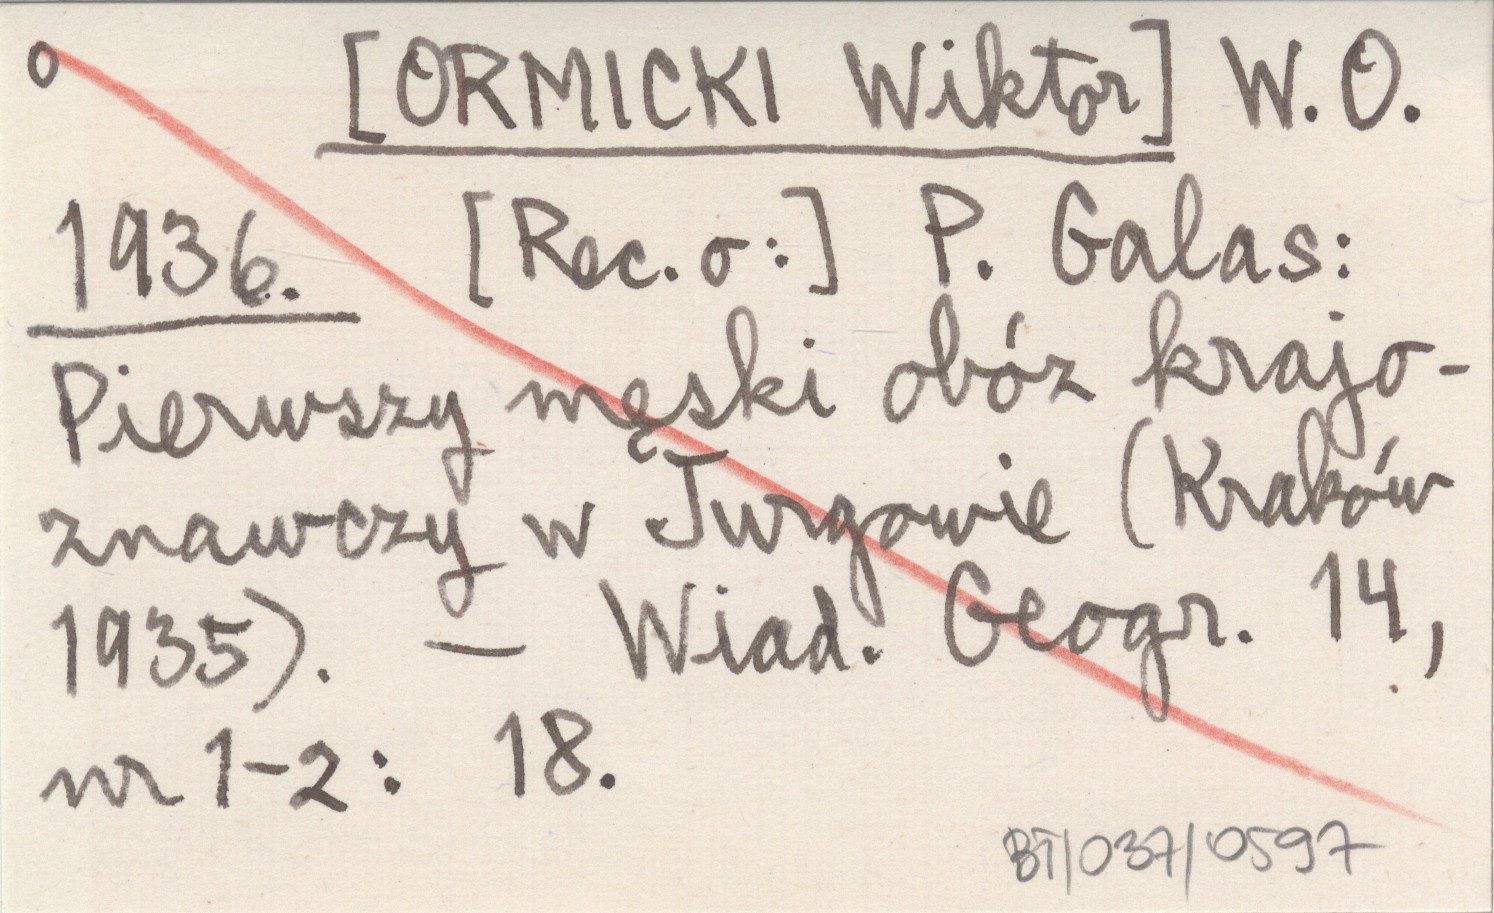 o [ORMICKI Wiktor] W. O.
1936. [Rec. o:] P. Galas:
Pierwszy męski obóz krajo-
znawczy w Jurgowie (Kraków
1935). — Wiad. Geogr. 14,
nr 1-2: 18.
BT/037/0597